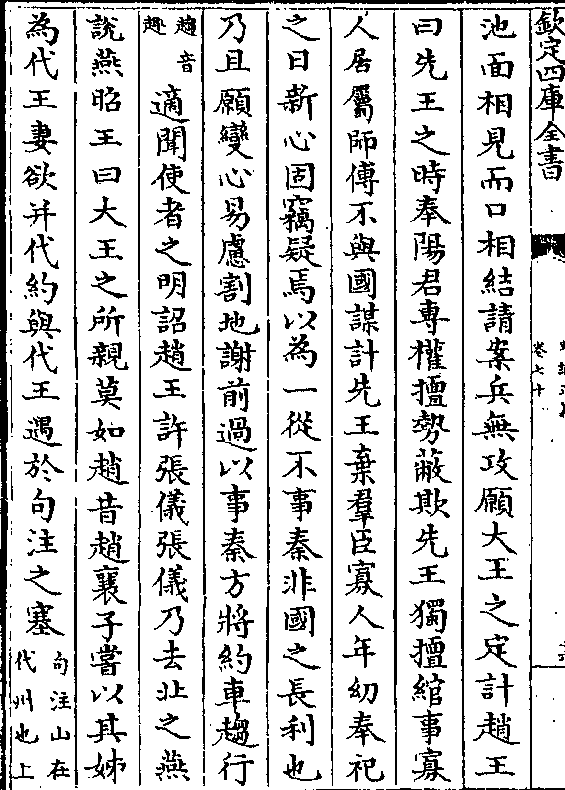 欽定四庫全書
卷七十
池面相見而口相結請案兵無攻願大王之定計趙王
曰先王之時奉陽君專權擅勢蔽欺先王獨擅綰事寡
人居屬師傅不與國謀計先王棄羣臣寡人年幼奉祀
之日新心固竊疑焉以為一從不事秦非國之長利也
乃且願變心易慮割地謝前過以事秦方將約車趨行
趨音
趣
適聞使者之明詔趙王許張儀張儀乃去北之燕
說燕昭王曰大王之所親莫如趙昔趙襄子嘗以其姊
為代王妻欲并代約與代王遇於句注之塞
句注山在
代州也上